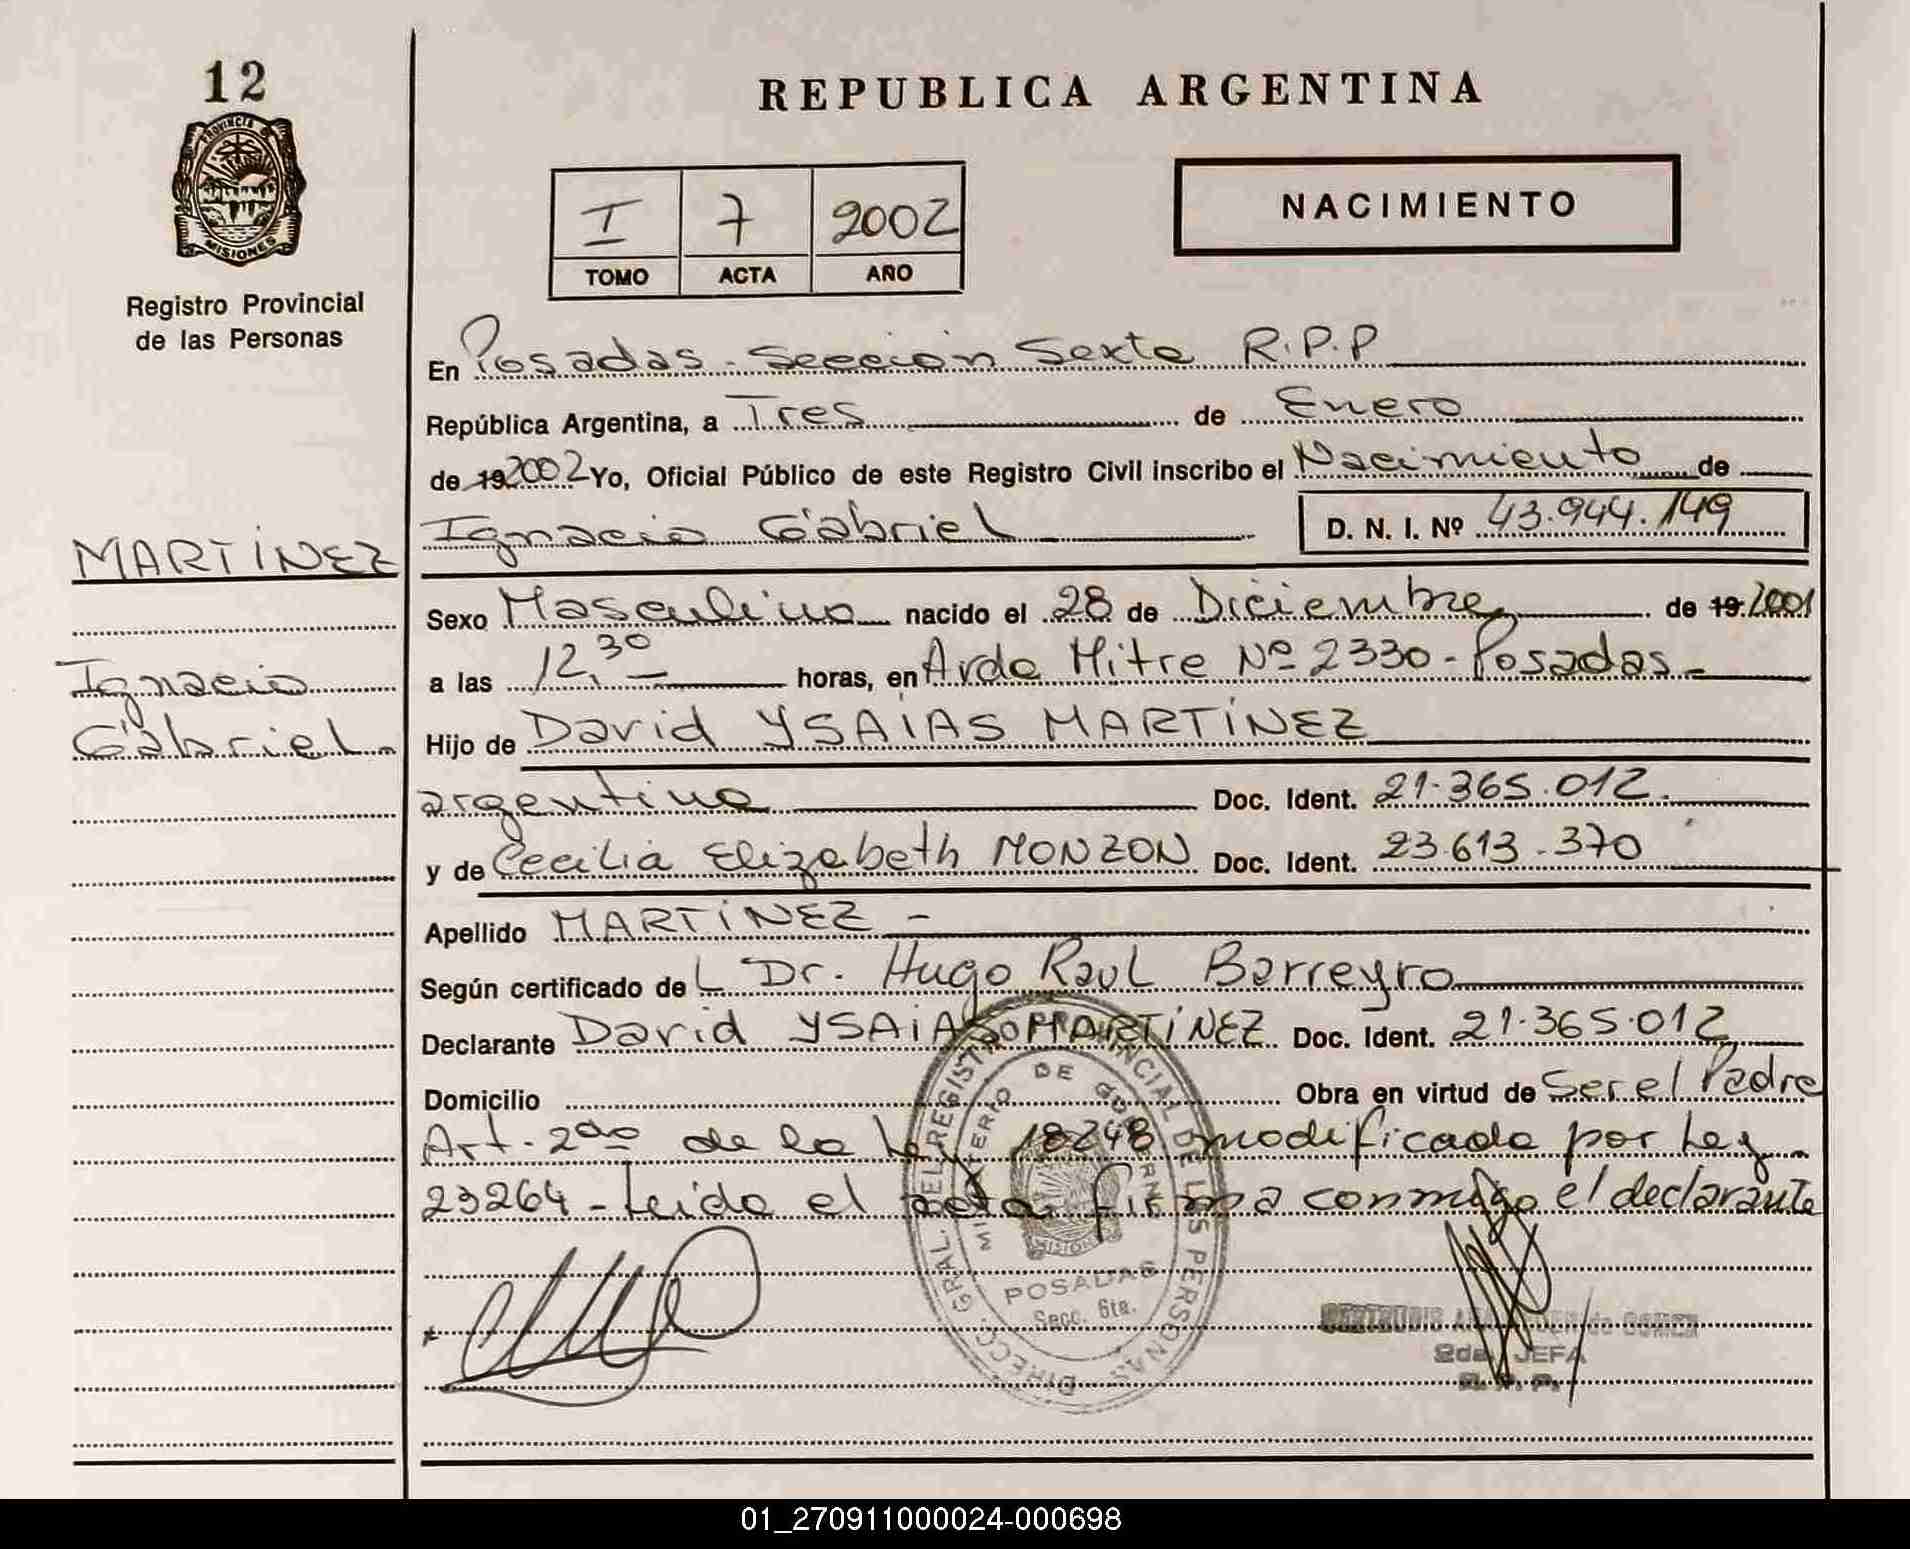 12
PROVINCIA DE
MISIONES
Registro Provincial
de las Personas
REPUBLICA ARGENTINA
I 7 2002
TOMO ACTA AÑO
NACIMIENTO
En Posadas - Sección Sexta R.P.P
República Argentina, a Tres de Enero
de 19 2002 Yo, Oficial Público de este Registro Civil inscribo el Nacimiento de
Ignacio Gabriel D. N. I. Nº 43.944.149
MARTÍNEZ
Ignacio
Gabriel.
Sexo Masculino nacido el 28 de Diciembre de 19 2001
a las 12,30 horas, en Avda Mitre Nº 2330 - Posadas -
Hijo de David YSAÍAS MARTÍNEZ
argentino Doc. Ident. 21.365.012.
y de Cecilia Elizabeth MONZON Doc. Ident. 23.613.370
Apellido MARTÍNEZ -
Según certificado del Dr. Hugo Raul Barreyro
Declarante David YSAÍAS MARTÍNEZ Doc. Ident. 21.365.012
Domicilio Obra en virtud de Ser el Padre
Art. 2do de la Ley 18248 modificada por Ley
23264 - Leida el acta firma conmigo el declarante
DIRECC. GRAL. DEL REGISTRO PROVINCIAL DE LAS PERSONAS
MINISTERIO DE GOBIERNO
MISIONES
POSADAS
Secc. 6ta.
de GOMEZ
2da. JEFA
R. P. P.
01_270911000024-000698